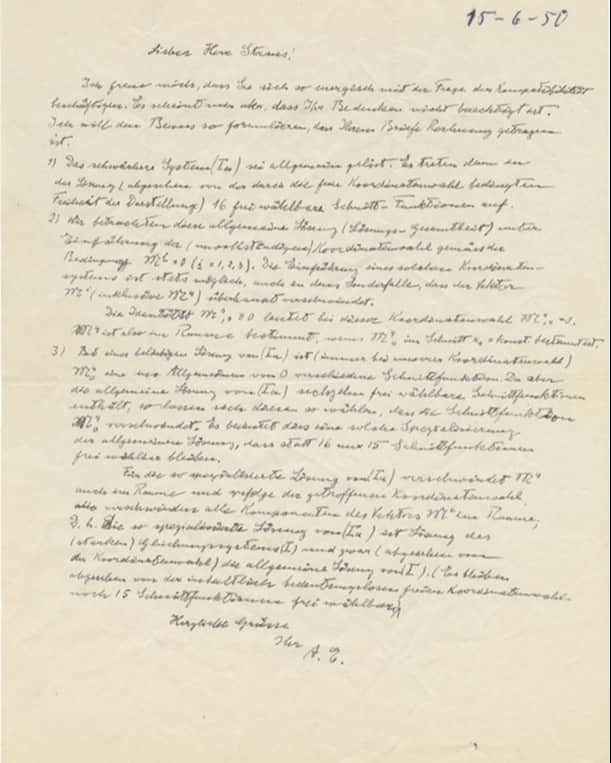 15-6-50
Lieber Herr Straus!
Ich freue mich, dass Sie sich so energisch mit der Frage der Kompatibilität
beschäftigen. Es scheint mir aber, dass Ihre Bedenken nicht berechtigt ist.
Ich will den Beweis so formulieren, dass Ihrem Briefe Rechnung getragen
ist.
1) Das schwächere System (Ia) sei allgemein gelöst. Es treten dann in
der Lösung (abgesehen von der durch die freie Koordinatenwahl bedingten
Freiheit der Darstellung) 16 frei wählbare Schnitt-Funktionen auf.
2) Wir betrachten diese allgemeine Lösung (Lösungs-Gesamtheit) unter
Einführung der (unvollständigen) Koordinatenwahl gemäss der
Bedingung 𝔐 = 0 (i = 1, 2, 3). Die Einführung eines solchen Koordinaten-
systems ist stets möglich, auch in dem Sonderfalle, dass der Vektor
(inklusive 𝔐⁴) überhaupt verschwindet.
Die Identität = 0 lautet bei dieser Koordinatenwahl = 0.
𝔐⁴ ist also im Raume bestimmt, wenn im Schnitt x₄ = konst. bestimmt ist.
3) Bei einer beliebigen Lösung von (Ia) ist (immer bei unserer Koordinatenwahl)
eine im Allgemeinen von 0 verschiedene Schnittfunktion. Da aber
die allgemeine Lösung von (Ia) sechzehn frei wählbare Schnittfunktionen
enthält, so lassen sich diese so wählen, dass die Schnittfunktion
verschwindet. Es bedeutet dies eine solche Spezialisierung
der allgemeinen Lösung, dass statt 16 nur 15 Schnittfunktionen
frei wählbar bleiben.
Für die so spezialisierte Lösung von (Ia) verschwindet 𝔐⁴
auch im Raume und zufolge der getroffenen Koordinatenwahl
also verschwinden alle Komponenten des Vektors im Raume,
D. h. Die so spezialisierte Lösung von (Ia) ist Lösung des
(starken) Gleichungssystems (I) und zwar (abgesehen von
der Koordinatenwahl) die allgemeine Lösung von (I). (Es bleiben
abgesehen von der inhaltlich bedeutungslosen freien Koordinatenwahl
noch 15 Schnittfunktionen frei wählbar)
Herzliche Grüsse
Ihr
A. E.